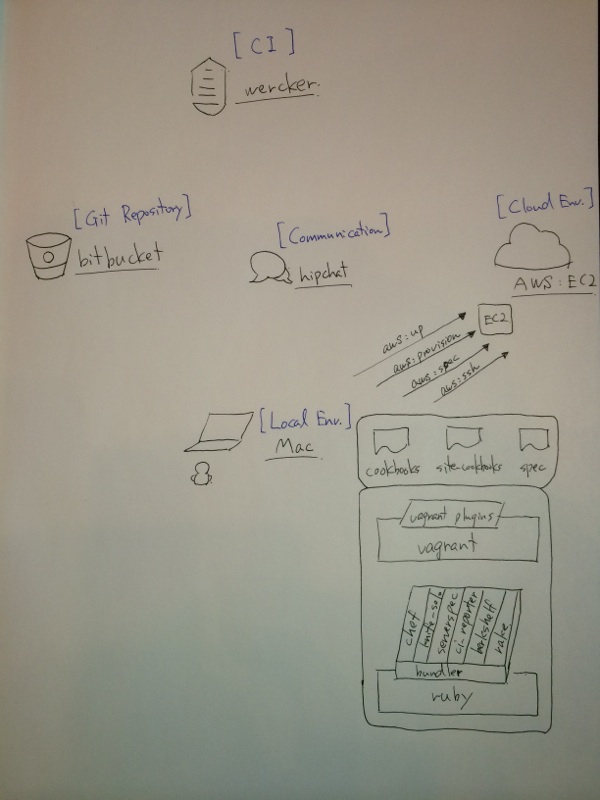 [CI]
wercker.
[Git Repository]
bitbucket
[Communication]
hipchat
[Cloud Env.]
AWS:EC2
EC2
aws:up
aws:provision
aws:spec
aws:ssh
[Local Env.]
Mac
cookbooks
site-cookbooks
spec
vagrant plugins
vagrant
chef
knife-solo
serverspec
ci-reporter
berkshelf
rake
bundler
ruby